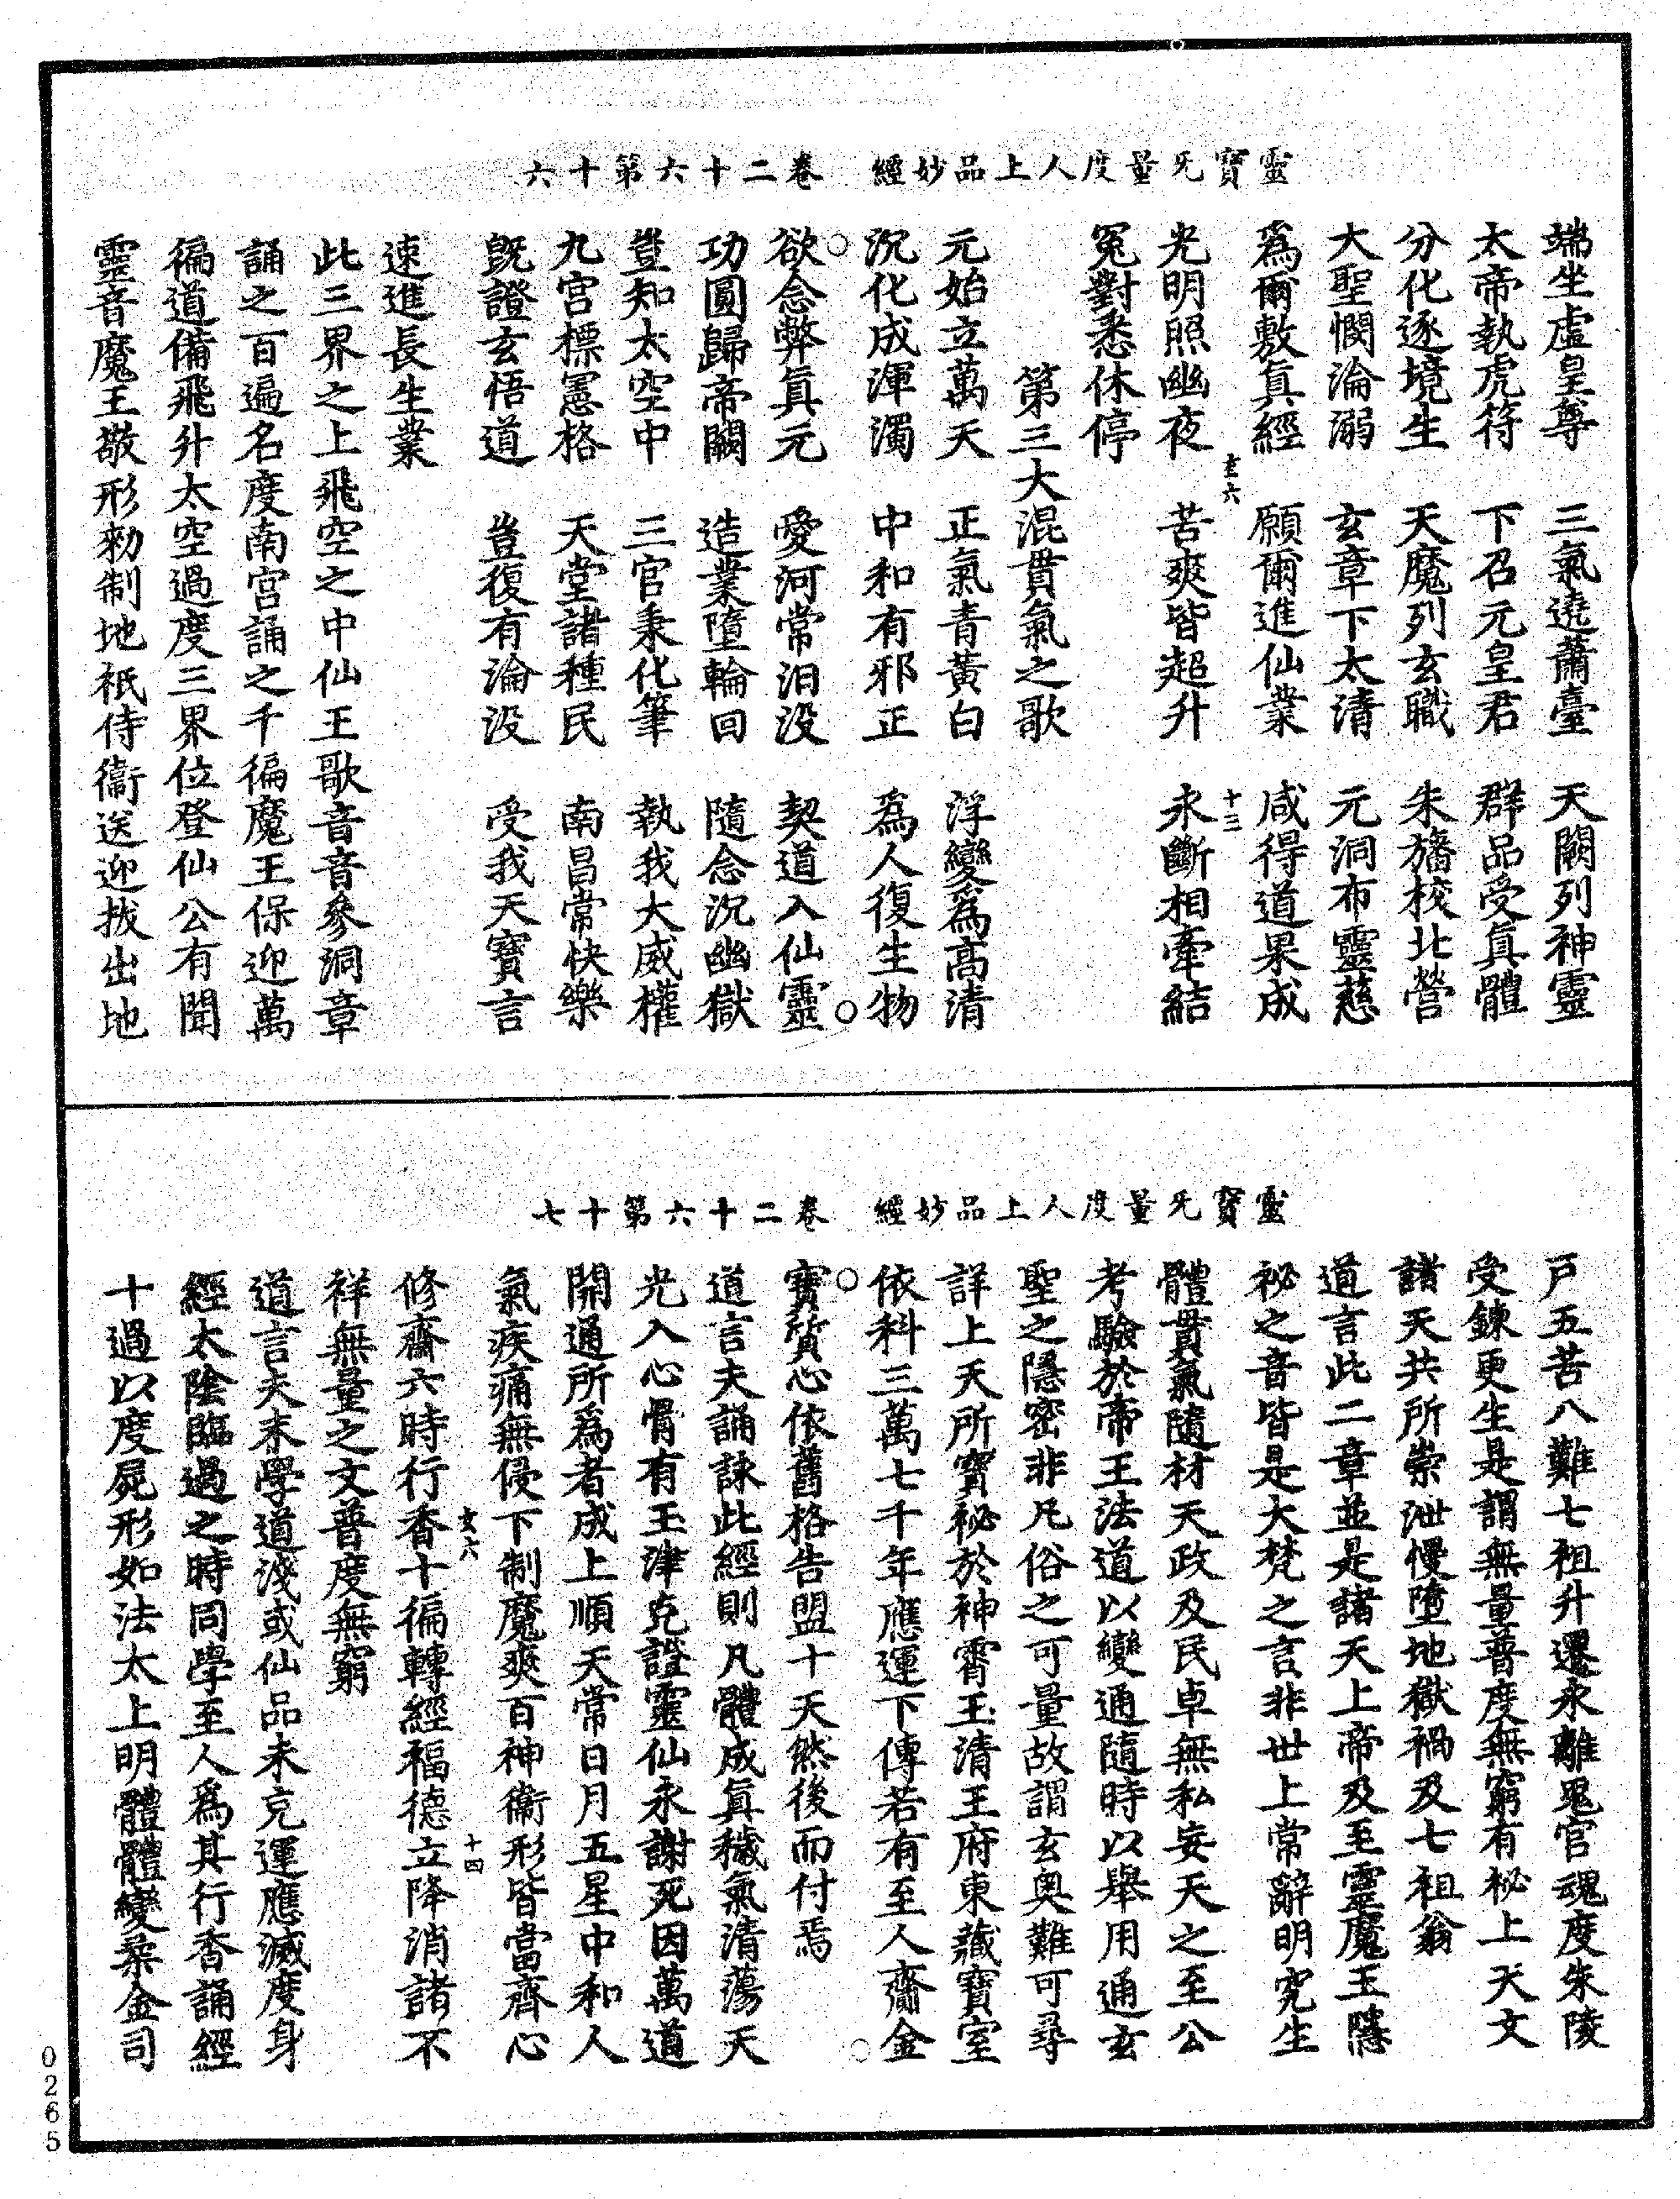 靈寶无量度人上品妙經　卷二十六第十六
端坐虛皇尊　三氣遶蕭臺　天闕列神靈
太帝執虎符　下召元皇君　群品受真體
分化逐境生　天魔列玄職　朱旛校北營
大聖憫淪溺　玄章下太清　元洞布靈慈
爲爾敷真經　願爾進仙業　咸得道果成
六　十三
光明照幽夜　苦爽皆超升　永斷相牽結
冤對悉休停
第三大混貫氣之歌
元始立萬天　正氣青黃白　浮變爲高清
沉化成渾濁　中和有邪正　為人復生物
欲念弊真元　愛河常汩没　契道入仙靈
功圓歸帝闕　造業墮輪回　隨念沉幽獄
豈知太空中　三官秉化筆　執我大威權
九宮標憲格　天堂諸種民　南昌常快樂
既證玄悟道　豈復有淪没　受我天寶言
速進長生業
此三界之上飛空之中仙王歌音音參洞章
誦之百遍名度南宮誦之千徧魔王保迎萬
徧道備飛升太空過度三界位登仙公有聞
靈音魔王敬形勑制地祇侍衛送迎拔出地
靈寶无量度人上品妙經　卷二十六第十七
戶五苦八難七祖升遷永離鬼官魂度朱陵
受鍊更生是謂無量普度無窮有祕上天文
諸天共所崇泄慢墮地獄禍及七祖翁
道言此二章並是諸天上帝及至靈魔王隱
祕之音皆是大梵之言非世上常辭明究生
體貫氣隨材天政及民卓無私妄天之至公
考驗於帝王法道以變通隨時以舉用通玄
聖之隱密非凡俗之可量故謂玄奧難可尋
詳上天所寶祕於神霄玉清王府東藏寶室
依科三萬七千年應運下傳若有至人齎金
寶質心依舊格告盟十天然後而付焉
道言夫誦詠此經則凡體成真穢氣清蕩天
光入心骨有玉津克證靈仙永謝死因萬道
開通所爲者成上順天常日月五星中和人
氣疾痛無侵下制魔爽百神衛形皆當齊心
六　十四
修齋六時行香十徧轉經福德立降消諸不
祥無量之文普度無窮
道言夫末學道淺或仙品未克運應滅度身
經太陰臨過之時同學至人爲其行香誦經
十過以度屍形如法太上明體體變柔金司
0265